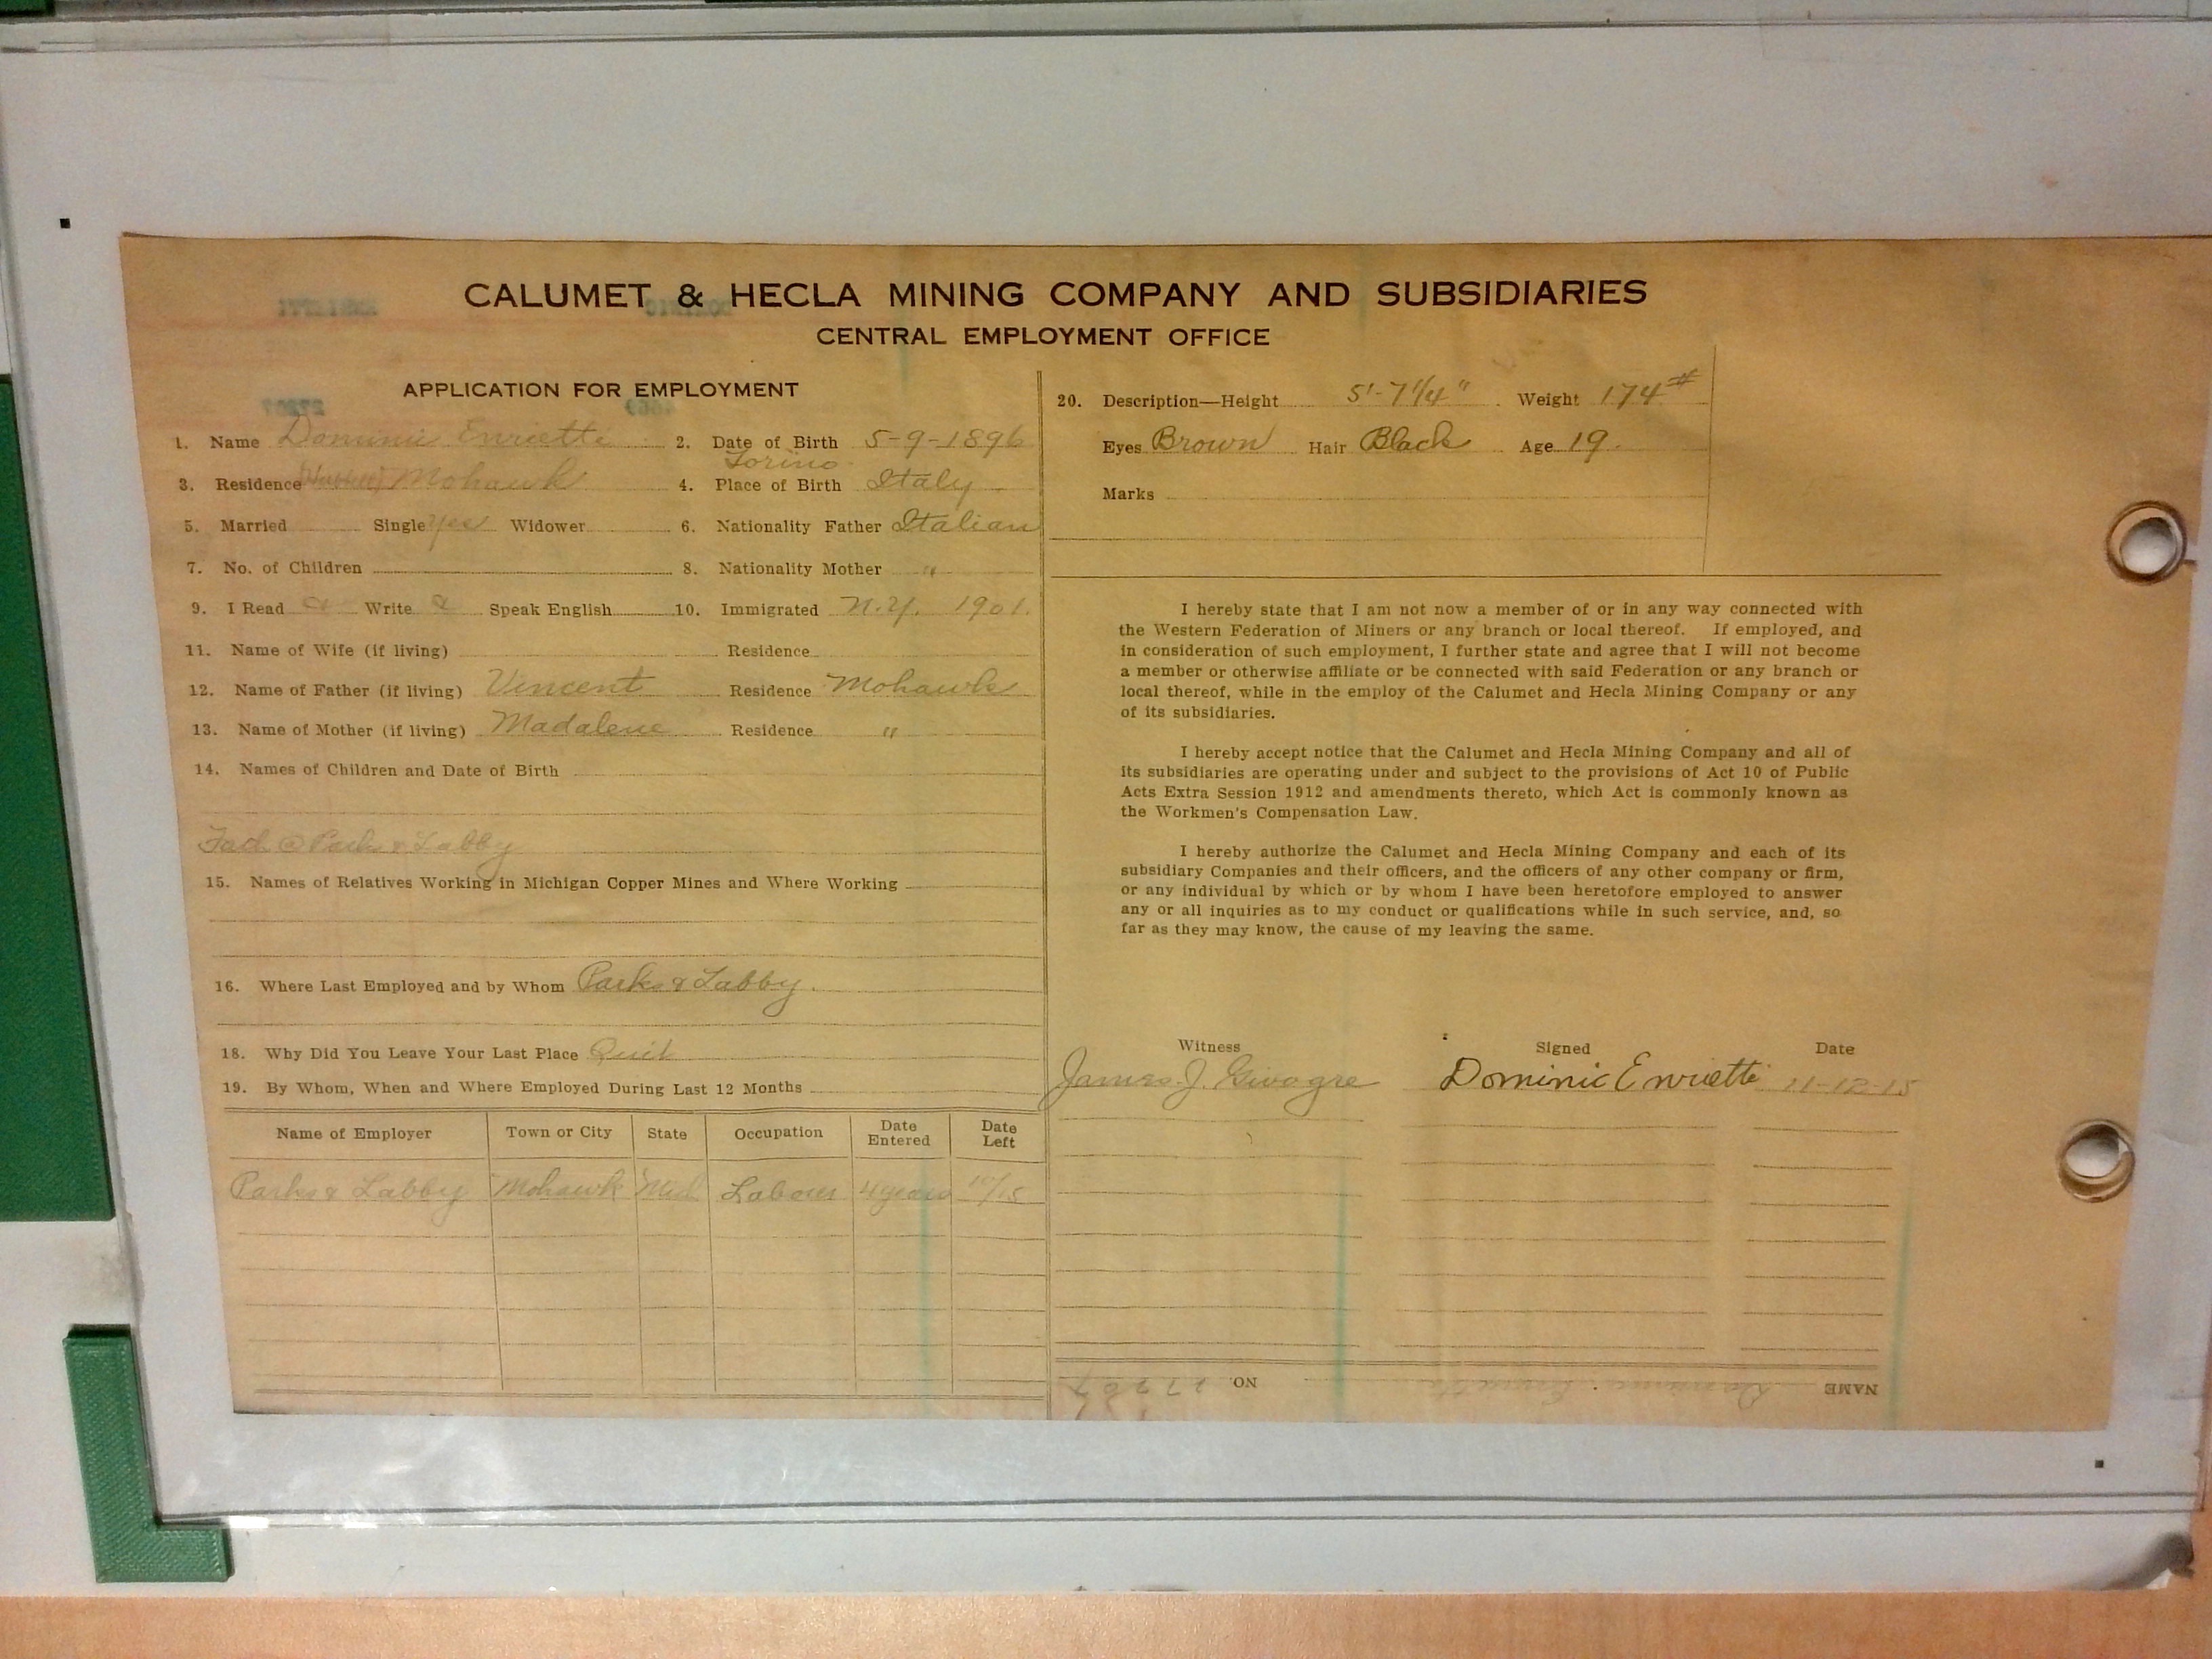 CALUMET & HECLA MINING COMPANY AND SUBSIDIARIES
CENTRAL EMPLOYMENT OFFICE
APPLICATION FOR EMPLOYMENT
1. Name Dominic Enrietti 2. Date of Birth 5-9-1896
Torino
3. Residence Mohawk 4. Place of Birth Italy
5. Married Single Yes Widower 6. Nationality Father Italian
7. No. of Children 8. Nationality Mother "
9. I Read & Write & Speak English 10. Immigrated N.Y. 1901.
11. Name of Wife (if living) Residence
12. Name of Father (if living) Vincent Residence Mohawk
13. Name of Mother (if living) Madalene Residence "
14. Names of Children and Date of Birth
Fath @ Parks & Labby
15. Names of Relatives Working in Michigan Copper Mines and Where Working
16. Where Last Employed and by Whom Parks & Labby.
18. Why Did You Leave Your Last Place Quit
19. By Whom, When and Where Employed During Last 12 Months
Name of Employer Town or City State Occupation Date Entered Date Left
Parks & Labby Mohawk Mich Laborer 4 years 11/15
20. Description—Height 5'-7 1/4" Weight 174#
Eyes Brown Hair Black Age 19.
Marks
I hereby state that I am not now a member of or in any way connected with
the Western Federation of Miners or any branch or local thereof. If employed, and
in consideration of such employment, I further state and agree that I will not become
a member or otherwise affiliate or be connected with said Federation or any branch or
local thereof, while in the employ of the Calumet and Hecla Mining Company or any
of its subsidiaries.
I hereby accept notice that the Calumet and Hecla Mining Company and all of
its subsidiaries are operating under and subject to the provisions of Act 10 of Public
Acts Extra Session 1912 and amendments thereto, which Act is commonly known as
the Workmen's Compensation Law.
I hereby authorize the Calumet and Hecla Mining Company and each of its
subsidiary Companies and their officers, and the officers of any other company or firm,
or any individual by which or by whom I have been heretofore employed to answer
any or all inquiries as to my conduct or qualifications while in such service, and, so
far as they may know, the cause of my leaving the same.
Witness Signed Date
James J. Dominic Enrietti 11-12-15
NAME Dominic Enrietti NO. 27267